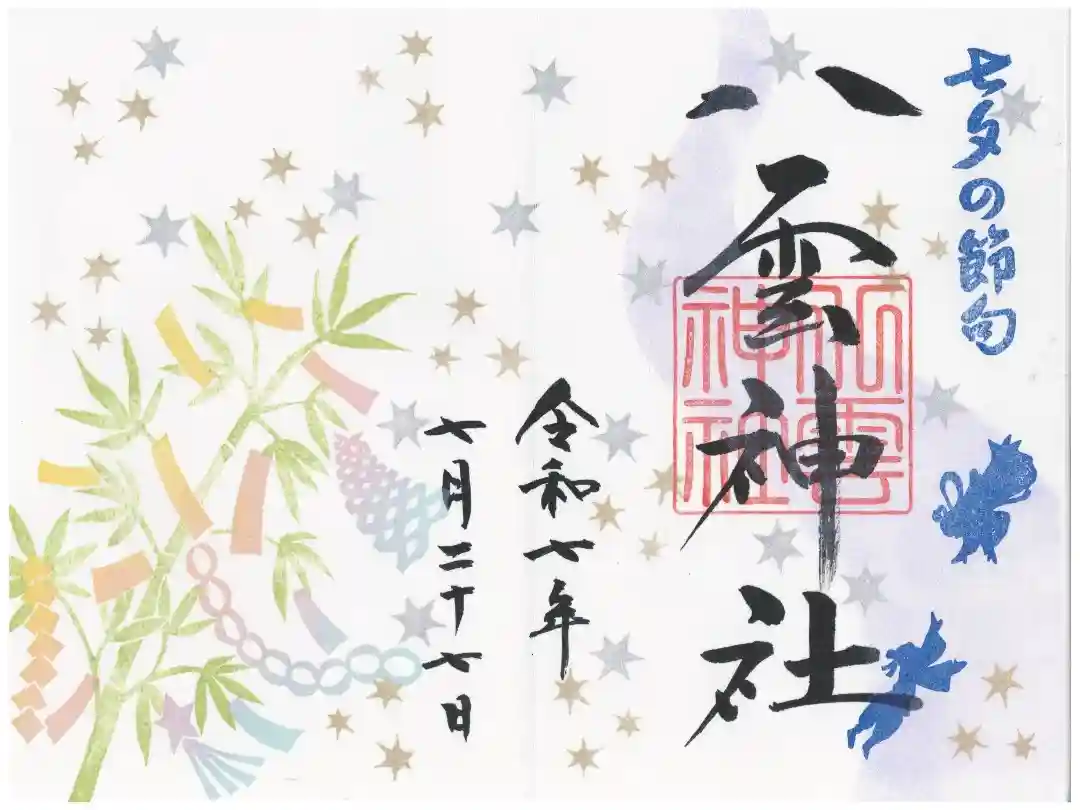 七夕の節句
八雲神社
八雲神社
令和七年
七月二十七日